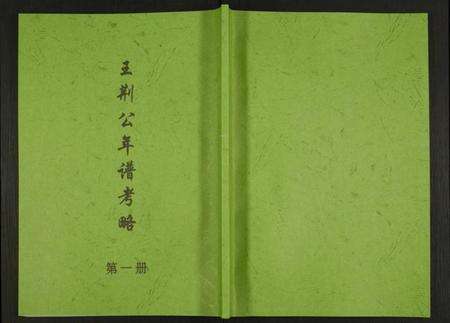 王荆公年谱考略
第一册